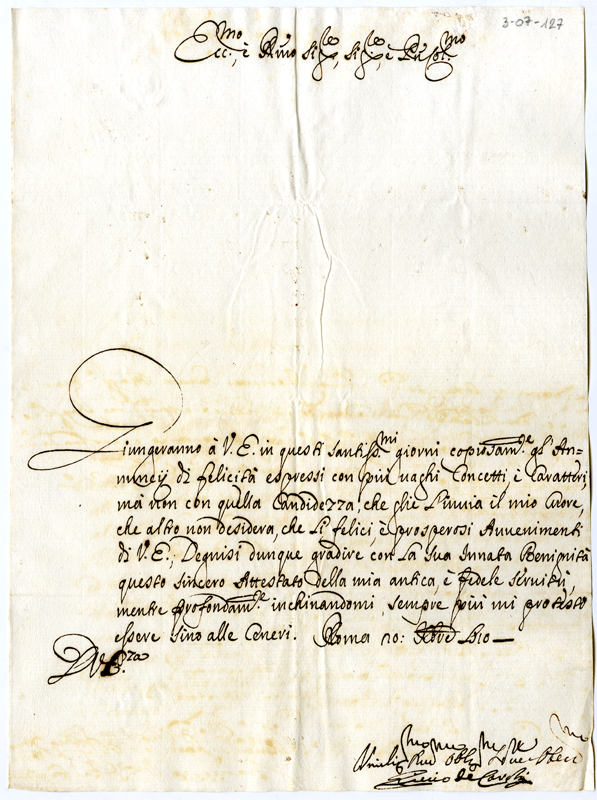 3-07-127
Ecc.mo, è Rev.mo Sig.re, Sig.re, è Pron Col.mo
Giungeranno à V. E. in questi santiss.mi giorni copiosam.te gl'An=
nuncÿ di felicità espressi con più uaghi Concetti è Caratteri,
mà non con quella Candidezza, che glie L'inuia il mio Cuore,
che altro non desidera, che Li felici, è prosperosi Auuenimenti
di V. E.; Degnisi dunque gradire con La Sua Innata Benignità
questo sincero Attestato della mia antica, è fidele seruitù,
mentre profondam.te inchinandomi, sempre più mi protesto
essere sino alle Ceneri. Roma 20: Xbre
D. V. E.za